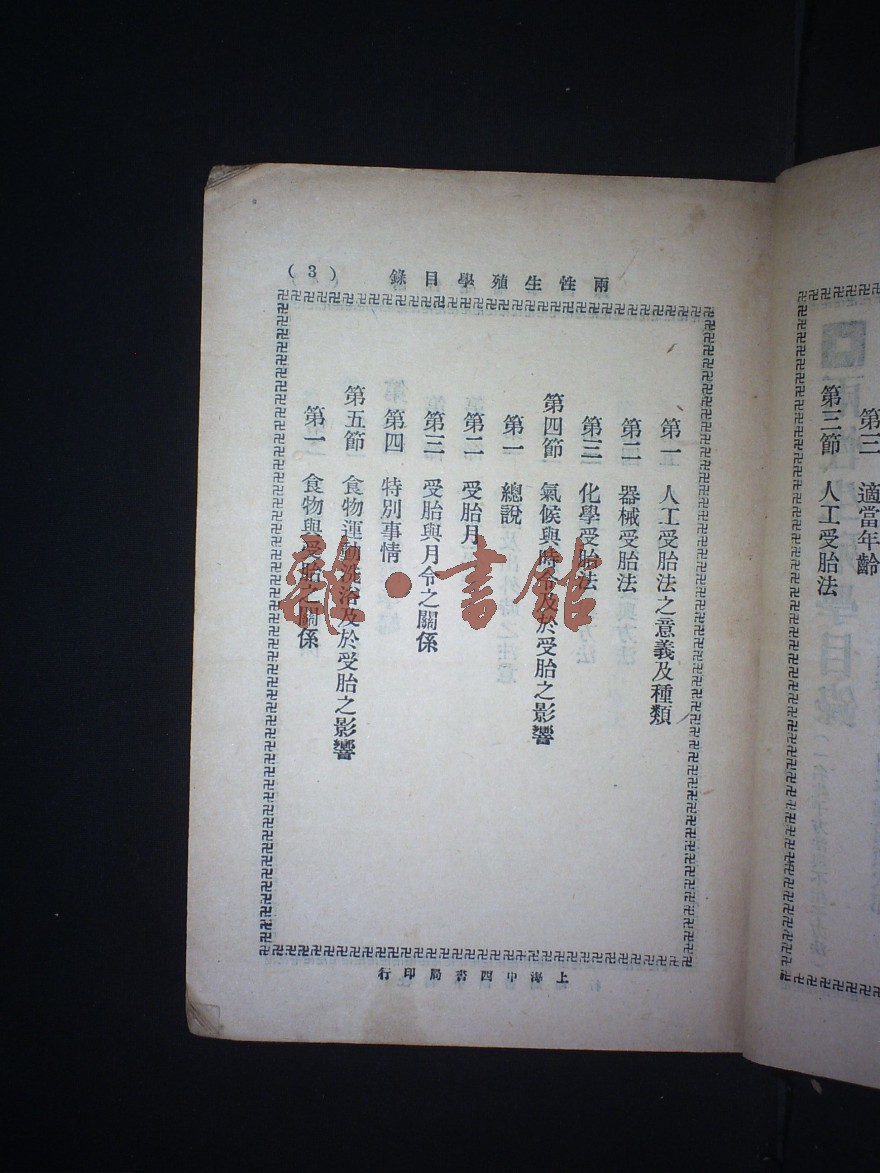 第三　適當年齡
第三節　人工受胎法
兩性生殖學目錄
(3)
第一　人工受胎法之意義及種類
第二　器械受胎法
第三　化學受胎法
第四節　氣候與時令及於受胎之影響
第一　總說
第二　受胎月
第三　受胎與月令之關係
第四　特別事情
第五節　食物運動洗浴及於受胎之影響
第一　食物與受胎之關係
上海中西書局印行
雜·書館